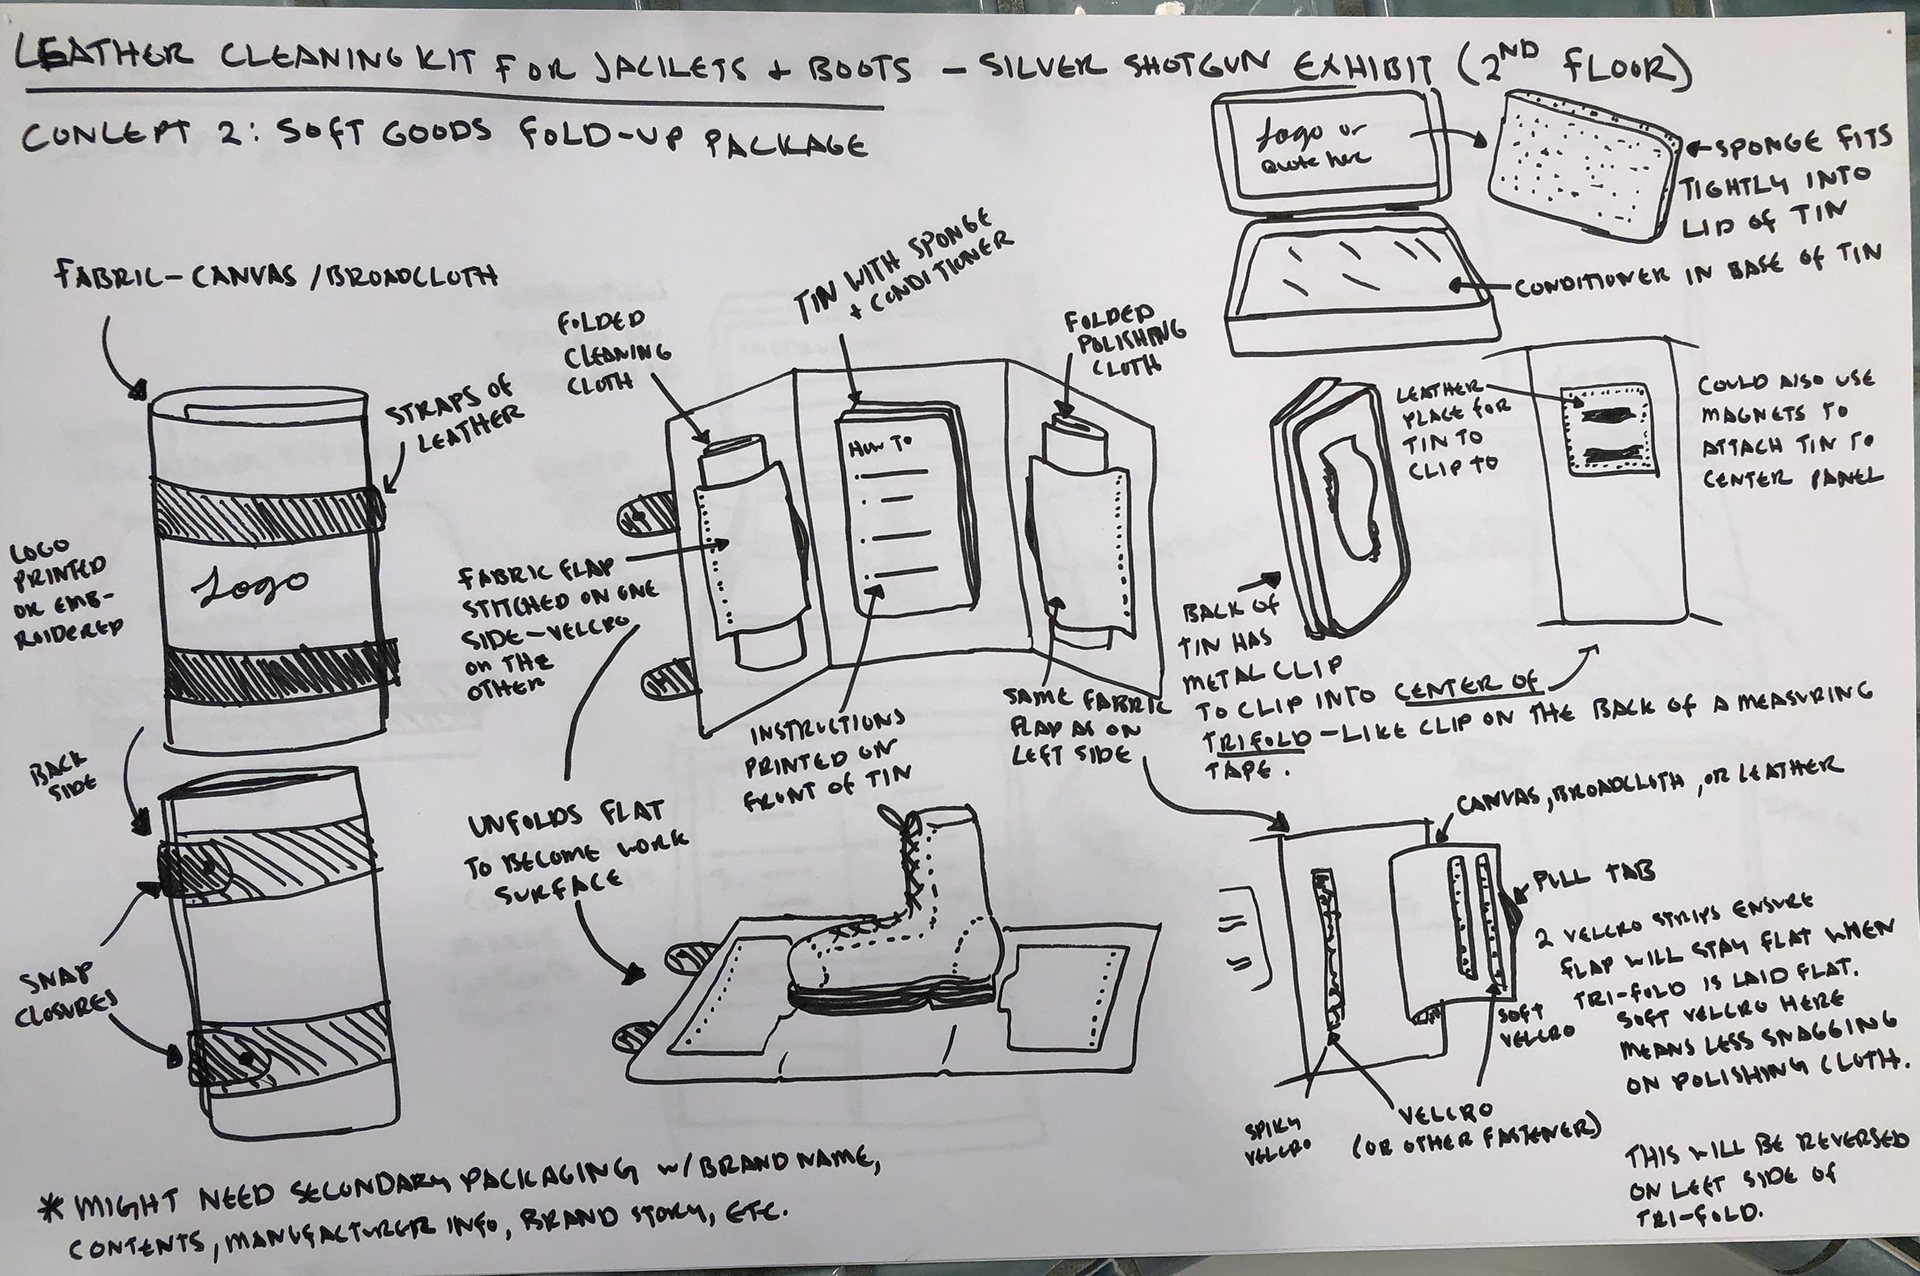 LEATHER CLEANING KIT FOR JACKETS + BOOTS – SILVER SHOTGUN EXHIBIT (2ND FLOOR)
CONCEPT 2: SOFT GOODS FOLD-UP PACKAGE
FABRIC–CANVAS/BROADCLOTH
STRAPS OF
LEATHER
LOGO
PRINTED
OR EMB-
ROIDERED
Logo
BACK
SIDE
SNAP
CLOSURES
FOLDED
CLEANING
CLOTH
TIN WITH SPONGE
+ CONDITIONER
FOLDED
POLISHING
CLOTH
HOW TO
FABRIC FLAP
STITCHED ON ONE
SIDE–VELCRO
ON THE
OTHER
INSTRUCTIONS
PRINTED ON
FRONT OF TIN
SAME FABRIC
FLAP AS ON
LEFT SIDE
UNFOLDS FLAT
TO BECOME WORK
SURFACE
Logo or
Quote here
SPONGE FITS
TIGHTLY INTO
LID OF TIN
CONDITIONER IN BASE OF TIN
LEATHER
PLACE FOR
TIN TO
CLIP TO
COULD ALSO USE
MAGNETS TO
ATTACH TIN TO
CENTER PANEL
BACK OF
TIN HAS
METAL CLIP
TO CLIP INTO CENTER OF
TRIFOLD–LIKE CLIP ON THE BACK OF A MEASURING
TAPE.
CANVAS, BROADCLOTH, OR LEATHER
PULL TAB
2 VELCRO STRIPS ENSURE
FLAP WILL STAY FLAT WHEN
TRI-FOLD IS LAID FLAT.
SOFT VELCRO HERE
MEANS LESS SNAGGING
ON POLISHING CLOTH.
SOFT
VELCRO
SPIKY
VELCRO
VELCRO
(OR OTHER FASTENER)
THIS WILL BE REVERSED
ON LEFT SIDE OF
TRI-FOLD.
* MIGHT NEED SECONDARY PACKAGING W/ BRAND NAME,
CONTENTS, MANUFACTURER INFO, BRAND STORY, ETC.